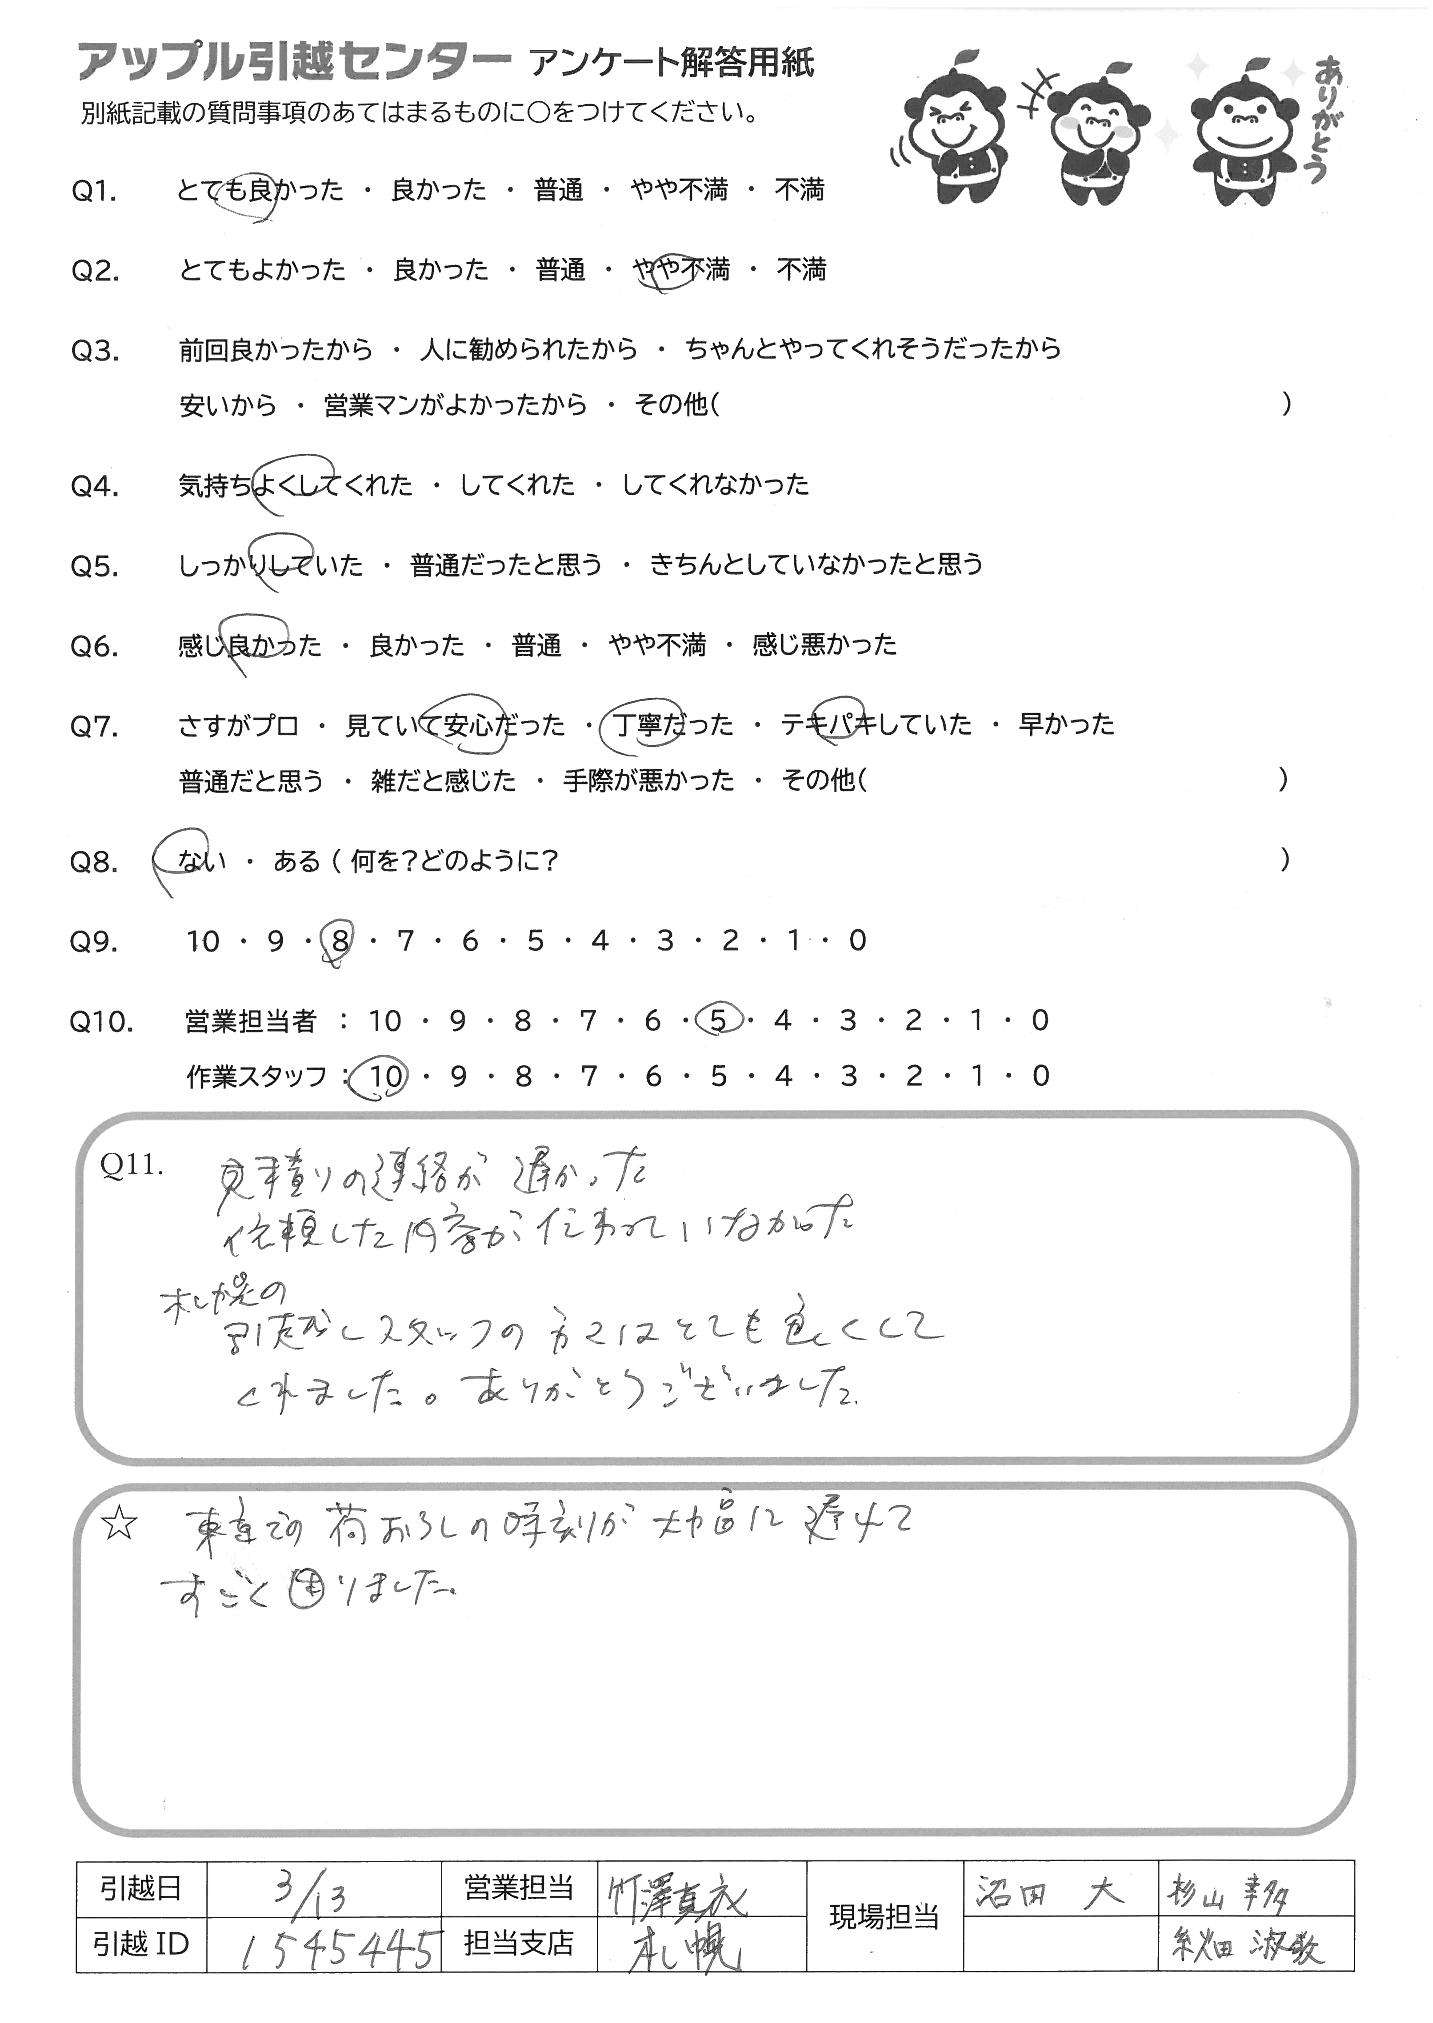 アップル引越センター アンケート解答用紙
ありがとう
別紙記載の質問事項のあてはまるものに○をつけてください。
Q1. とても良かった ・ 良かった ・ 普通 ・ やや不満 ・ 不満
Q2. とてもよかった ・ 良かった ・ 普通 ・ やや不満 ・ 不満
Q3. 前回良かったから ・ 人に勧められたから ・ ちゃんとやってくれそうだったから
安いから ・ 営業マンがよかったから ・ その他( )
Q4. 気持ちよくしてくれた ・ してくれた ・ してくれなかった
Q5. しっかりしていた ・ 普通だったと思う ・ きちんとしていなかったと思う
Q6. 感じ良かった ・ 良かった ・ 普通 ・ やや不満 ・ 感じ悪かった
Q7. さすがプロ ・ 見ていて安心だった ・ 丁寧だった ・ テキパキしていた ・ 早かった
普通だと思う ・ 雑だと感じた ・ 手際が悪かった ・ その他( )
Q8. ない ・ ある ( 何を?どのように? )
Q9. 10 ・ 9 ・ 8 ・ 7 ・ 6 ・ 5 ・ 4 ・ 3 ・ 2 ・ 1 ・ 0
Q10. 営業担当者 : 10 ・ 9 ・ 8 ・ 7 ・ 6 ・ 5 ・ 4 ・ 3 ・ 2 ・ 1 ・ 0
作業スタッフ : 10 ・ 9 ・ 8 ・ 7 ・ 6 ・ 5 ・ 4 ・ 3 ・ 2 ・ 1 ・ 0
Q11. 見積りの連絡が遅かった
依頼した内容が伝わっていなかった
札幌の
引越しスタッフの方々はとても良くして
くれました。ありがとうございました。
☆ 東京での荷おろしの時刻が大幅に遅れて
すごく困りました。
引越日 3/13 営業担当 竹澤真衣 現場担当 沼田 大 杉山 幸多
引越 ID 1545445 担当支店 札幌 畑 淑敬